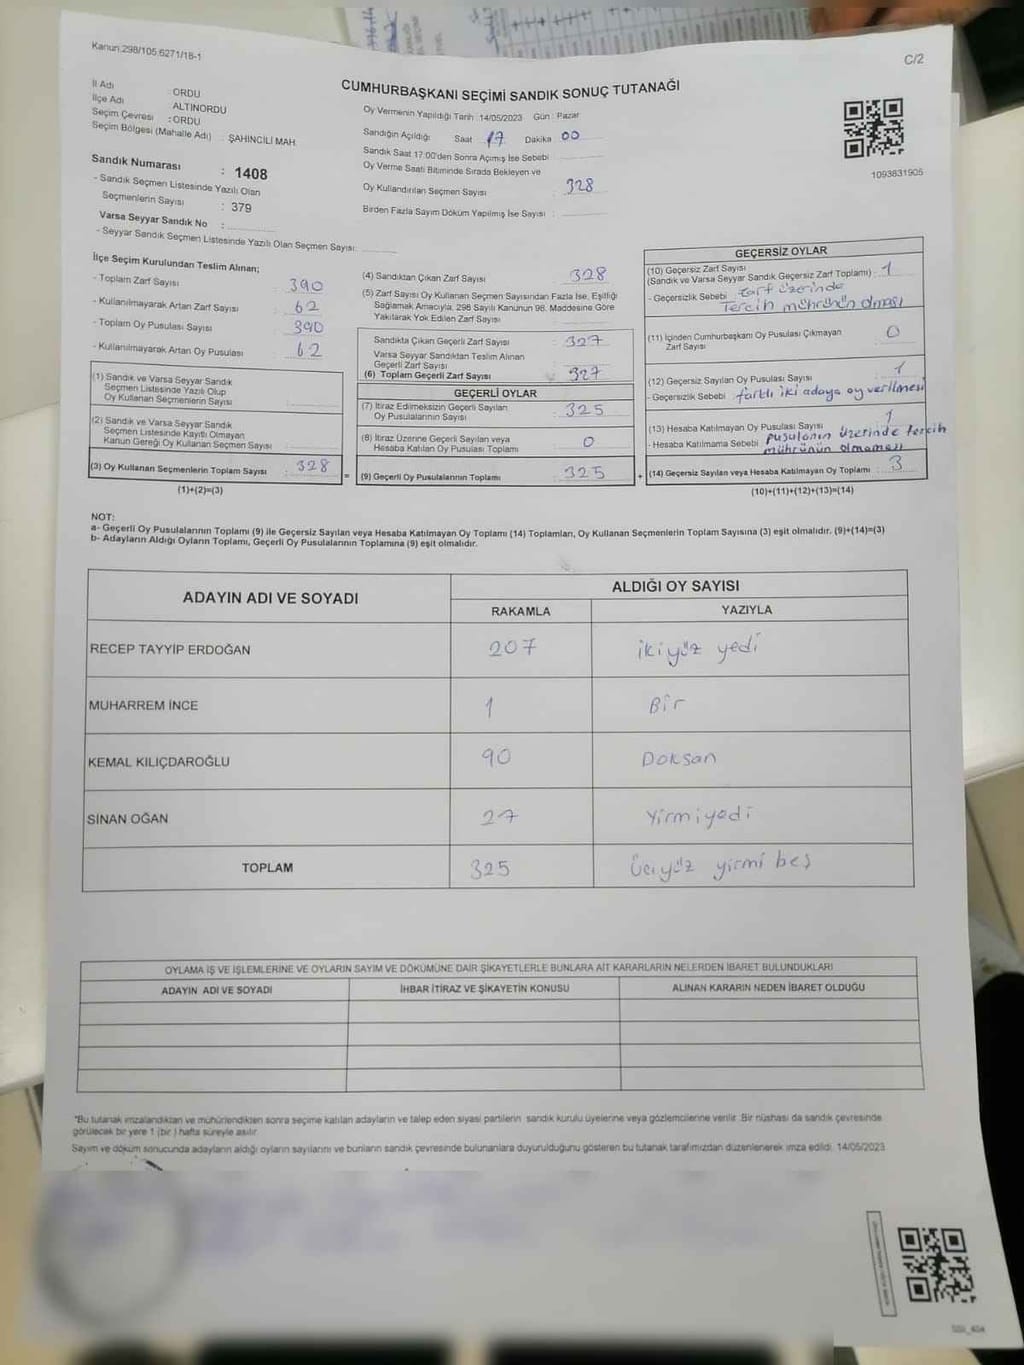 Kanun.298/105.6271/18-1
C/2
CUMHURBAŞKANI SEÇİMİ SANDIK SONUÇ TUTANAĞI
İl Adı : ORDU
İlçe Adı : ALTINORDU
Seçim Çevresi : ORDU
Seçim Bölgesi (Mahalle Adı) : ŞAHİNCİLİ MAH.
Sandık Numarası : 1408
- Sandık Seçmen Listesinde Yazılı Olan
Seçmenlerin Sayısı : 379
Varsa Seyyar Sandık No :
- Seyyar Sandık Seçmen Listesinde Yazılı Olan Seçmen Sayısı:
Oy Vermenin Yapıldığı Tarih : 14/05/2023 Gün : Pazar
Sandığın Açıldığı Saat 17 Dakika 00
Sandık Saat 17:00'den Sonra Açımış İse Sebebi
Oy Verme Saati Bitiminde Sırada Bekleyen ve
Oy Kullandırılan Seçmen Sayısı : 328
Birden Fazla Sayım Döküm Yapılmış İse Sayısı :
1093831905
İlçe Seçim Kurulundan Teslim Alınan;
- Toplam Zarf Sayısı : 390
- Kullanılmayarak Artan Zarf Sayısı : 62
- Toplam Oy Pusulası Sayısı : 390
- Kullanılmayarak Artan Oy Pusulası : 62
(1) Sandık ve Varsa Seyyar Sandık
Seçmen Listesinde Yazılı Olup
Oy Kullanan Seçmenlerin Sayısı :
(2) Sandık ve Varsa Seyyar Sandık
Seçmen Listesinde Kayıtlı Olmayan
Kanun Gereği Oy Kullanan Seçmen Sayısı :
(3) Oy Kullanan Seçmenlerin Toplam Sayısı : 328
(1)+(2)=(3)
(4) Sandıktan Çıkan Zarf Sayısı : 328
(5) Zarf Sayısı Oy Kullanan Seçmen Sayısından Fazla İse, Eşitliği
Sağlamak Amacıyla, 298 Sayılı Kanunun 98. Maddesine Göre
Yakılarak Yok Edilen Zarf Sayısı :
Sandıkta Çıkan Geçerli Zarf Sayısı : 327
Varsa Seyyar Sandıktan Teslim Alınan
Geçerli Zarf Sayısı :
(6) Toplam Geçerli Zarf Sayısı : 327
GEÇERLİ OYLAR
(7) İtiraz Edilmeksizin Geçerli Sayılan
Oy Pusulalarının Sayısı : 325
(8) İtiraz Üzerine Geçerli Sayılan veya
Hesaba Katılan Oy Pusulası Toplamı : 0
(9) Geçerli Oy Pusulalarının Toplamı : 325
GEÇERSİZ OYLAR
(10) Geçersiz Zarf Sayısı
(Sandık ve Varsa Seyyar Sandık Geçersiz Zarf Toplamı) : 1
- Geçersizlik Sebebi : zarf üzerinde
Tercih mührünün olması
(11) İçinden Cumhurbaşkanı Oy Pusulası Çıkmayan
Zarf Sayısı : 0
(12) Geçersiz Sayılan Oy Pusulası Sayısı : 1
- Geçersizlik Sebebi : farklı iki adaya oy verilmesi
(13) Hesaba Katılmayan Oy Pusulası Sayısı : 1
- Hesaba Katılmama Sebebi : pusulanın üzerinde tercih
mührünün olmaması
(14) Geçersiz Sayılan veya Hesaba Katılmayan Oy Toplamı : 3
(10)+(11)+(12)+(13)=(14)
NOT:
a- Geçerli Oy Pusulalarının Toplamı (9) ile Geçersiz Sayılan veya Hesaba Katılmayan Oy Toplamı (14) Toplamları, Oy Kullanan Seçmenlerin Toplam Sayısına (3) eşit olmalıdır. (9)+(14)=(3)
b- Adayların Aldığı Oyların Toplamı, Geçerli Oy Pusulalarının Toplamına (9) eşit olmalıdır.
ADAYIN ADI VE SOYADI
ALDIĞI OY SAYISI
RAKAMLA YAZIYLA
RECEP TAYYİP ERDOĞAN 207 ikiyüz yedi
MUHARREM İNCE 1 Bir
KEMAL KILIÇDAROĞLU 90 Doksan
SİNAN OĞAN 27 Yirmiyedi
TOPLAM 325 Üçyüz yirmi beş
OYLAMA İŞ VE İŞLEMLERİNE VE OYLARIN SAYIM VE DÖKÜMÜNE DAİR ŞİKAYETLERLE BUNLARA AİT KARARLARIN NELERDEN İBARET BULUNDUKLARI
ADAYIN ADI VE SOYADI İHBAR İTİRAZ VE ŞİKAYETİN KONUSU ALINAN KARARIN NEDEN İBARET OLDUĞU
"Bu tutanak imzalandıktan ve mühürlendikten sonra seçime katılan adayların ve talep eden siyasi partilerin sandık kurulu üyelerine veya gözlemcilerine verilir. Bir nüshası da sandık çevresinde
görülecek bir yere 1 (bir ) hafta süreyle asılır.
Sayım ve döküm sonucunda adayların aldığı oyların sayılarını ve bunların sandık çevresinde bulunanlara duyurulduğunu gösteren bu tutanak tarafımızdan düzenlenerek imza edildi. 14/05/2023